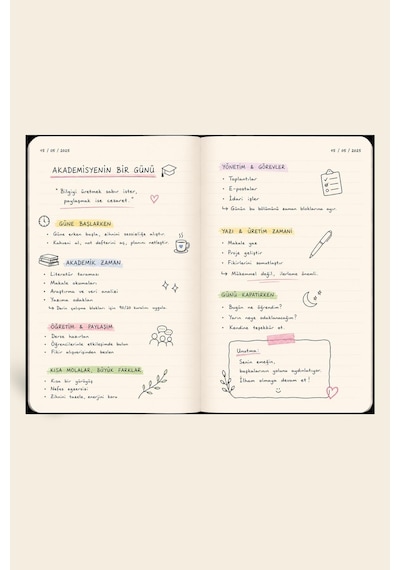 AKADEMİSYENİN BİR GÜNÜ
"Bilgiyi üretmek sabır ister,
paylaşmak ise cesaret."
GÜNE BAŞLARKEN
• Güne erken başla, zihnini sessizliğe alıştır.
• Kahveni al, not defterini aç, planını netleştir.
AKADEMİK ZAMAN
• Literatür taraması
• Makale okumaları
• Araştırma ve veri analizi
• Yazıma odaklan
↳ Derin çalışma blokları için 90/20 kuralını uygula.
ÖĞRETİM & PAYLAŞIM
• Derse hazırlan
• Öğrencilerinle etkileşimde bulun
• Fikir alışverişinden beslen
KISA MOLALAR, BÜYÜK FARKLAR
• Kısa bir yürüyüş
• Nefes egzersizi
• Zihnini tazele, enerjini koru
YÖNETİM & GÖREVLER
• Toplantılar
• E-postalar
• İdari işler
↳ Günün bu bölümünü zaman bloklarına ayır
YAZI & ÜRETİM ZAMANI
• Makale yaz
• Proje geliştir
• Fikirlerini somutlaştır
↳ Mükemmel değil, ilerleme önemli.
GÜNÜ KAPATIRKEN
• Bugün ne öğrendim?
• Yarın neye odaklanacağım?
• Kendine teşekkür et.
Unutma:
Senin emeğin,
başkalarının yolunu aydınlatıyor.
İlham olmaya devam et!